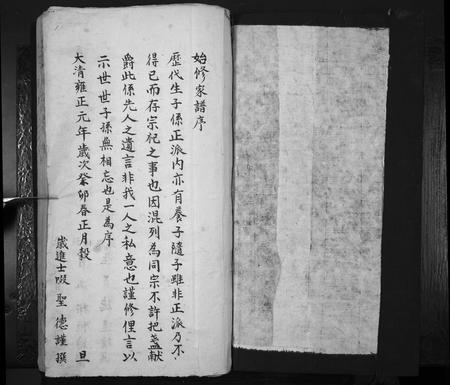 始修家譜序
歷代生子係正派內亦有養子隨子雖非正派乃不
得已而存宗祀之事也因混列為同宗不許把盞献
爵此係先人之遺言非我一人之私意也謹修俚言以
示世世子孫無相忘也是為序
大清雍正元年歲次癸卯春正月穀旦
歲進士啜聖德謹撰